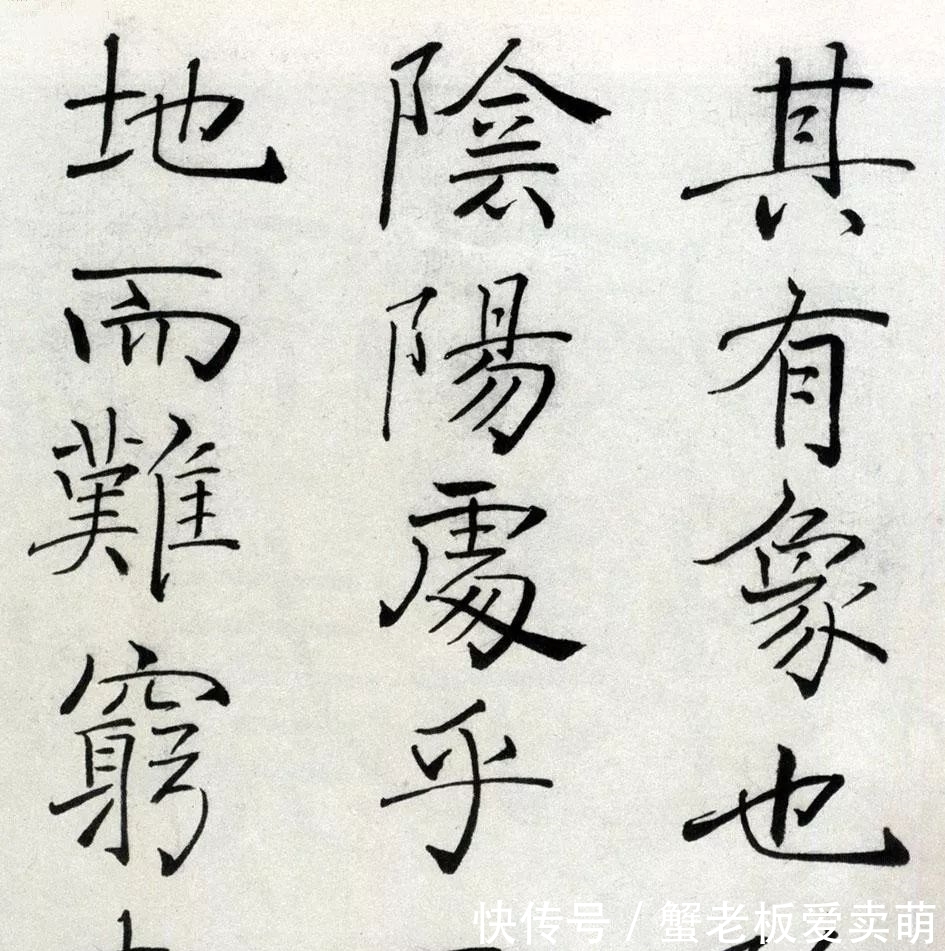 其有象也
陰陽處乎
地而難窮
快传号 / 蟹老板爱卖萌